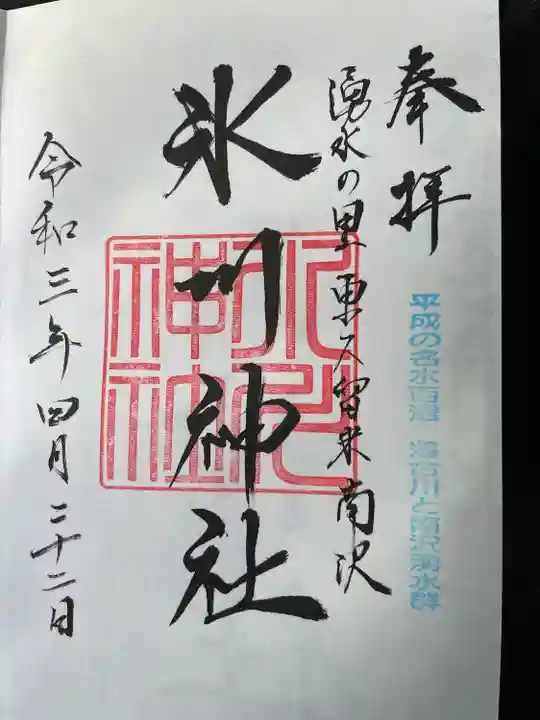 奉拝
平成の名水百選 落合川と南沢湧水群
湧水の里 東久留米 南沢
氷川神社
氷川神社
令和三年四月二十二日